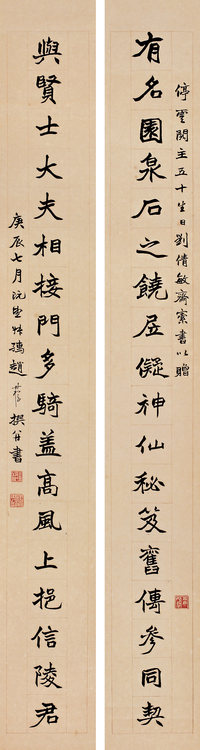 停雲閣主五十生日劉倩敏齋索書以贈
有名園泉石之饒居儗神仙秘笈舊傳參同契
與賢士大夫相接門多騎蓋高風上挹信陵君
庚辰七月沅
撰并書